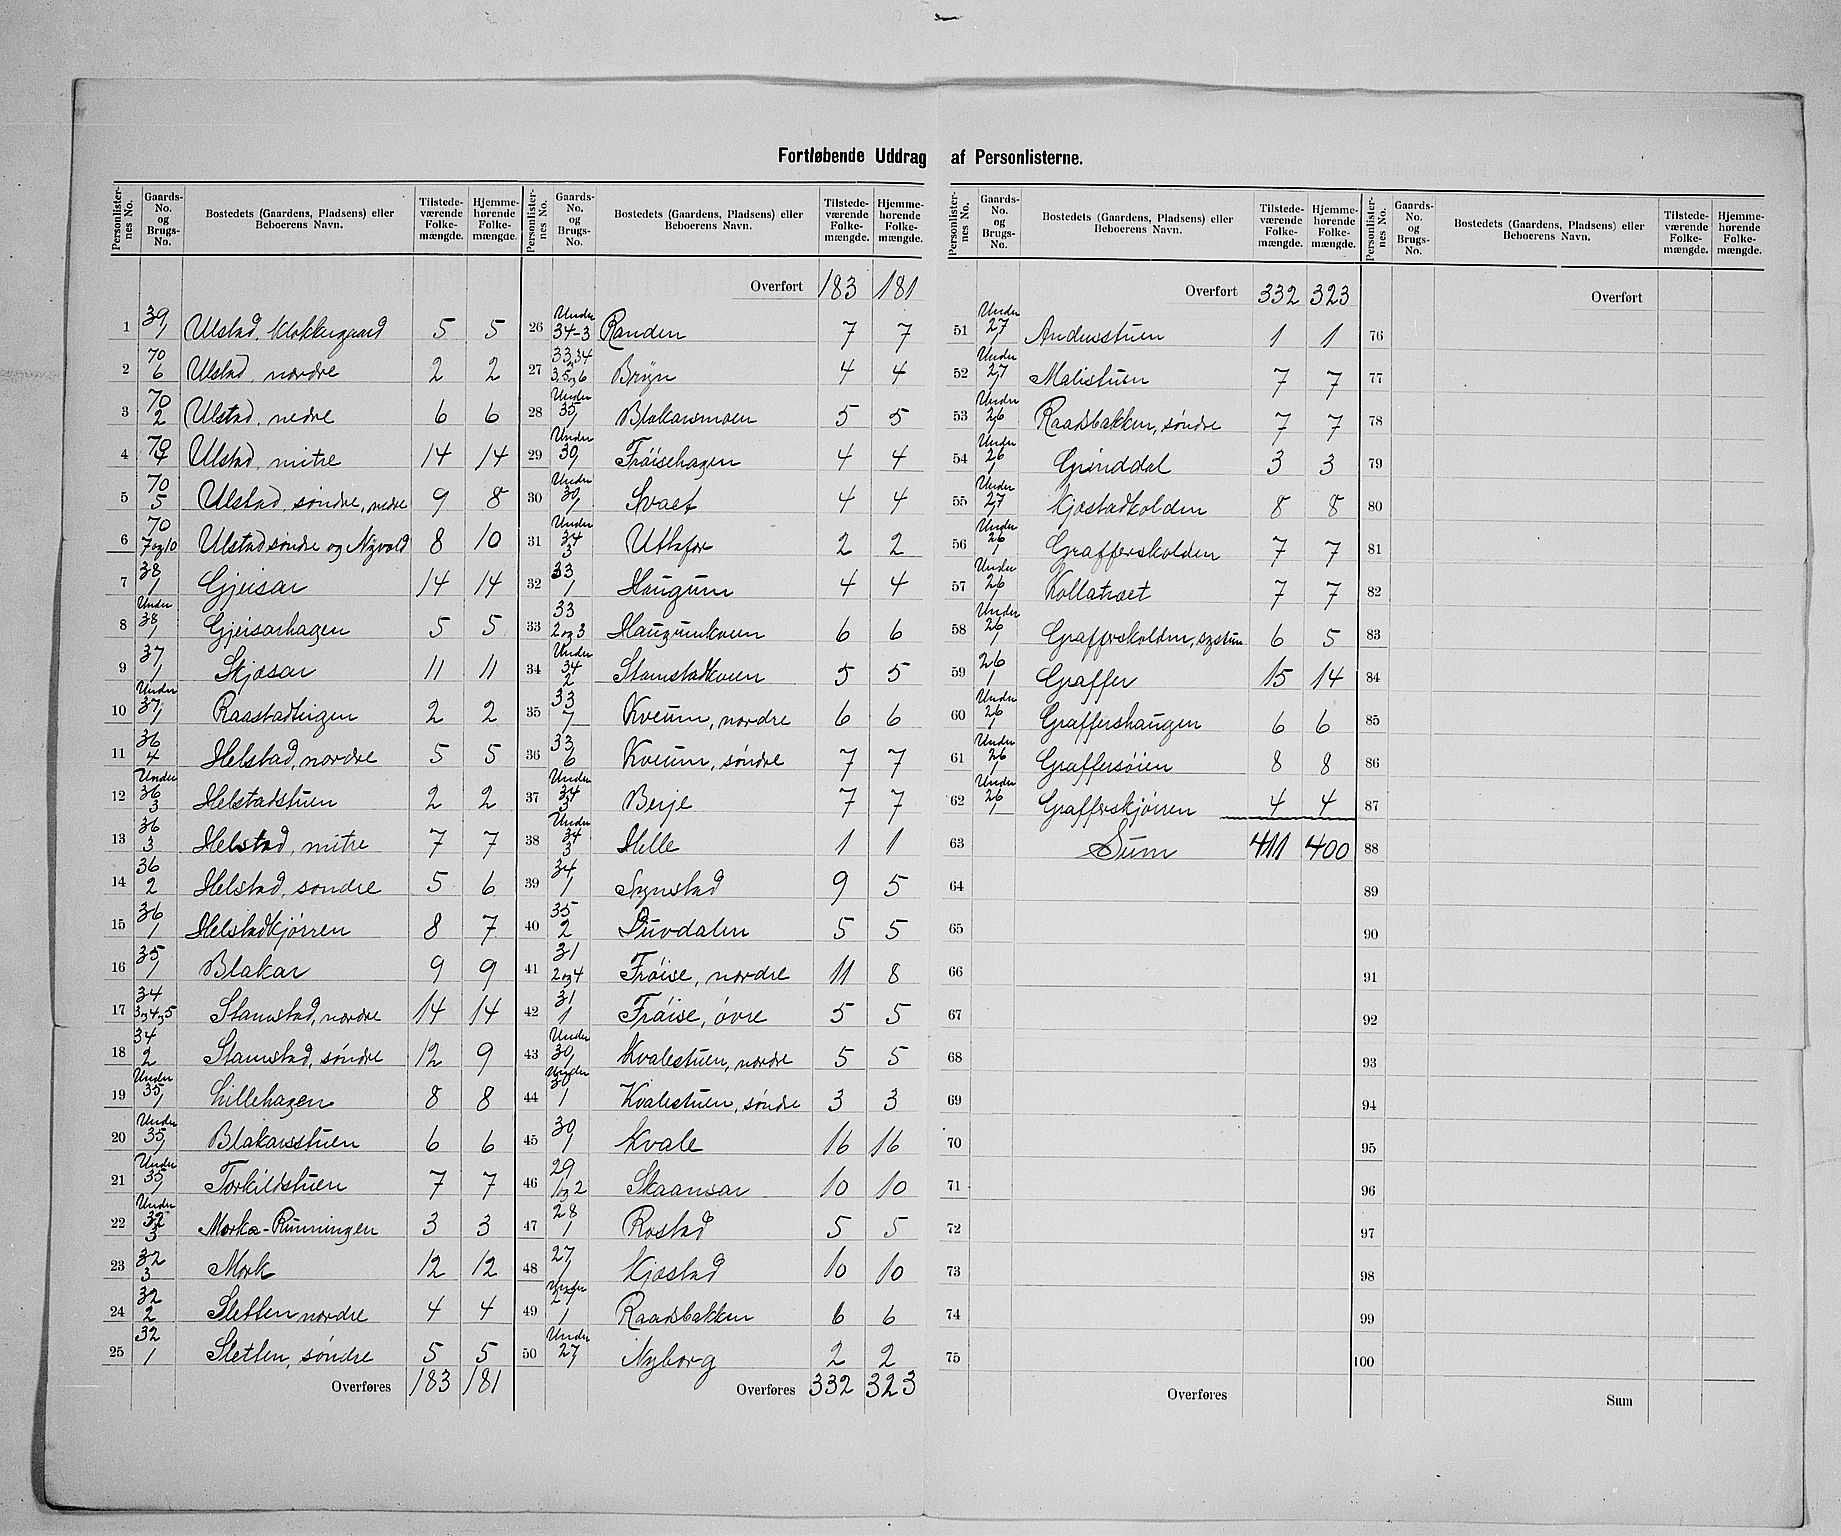 Fortløbende Uddrag af Personlisterne.
Personlister-nes No. | Gaards-No. og Brugs-No. | Bostedets (Gaardens, Pladsens) eller Beboerens Navn. | Tilstede-værende Folke-mængde. | Hjemme-hørende Folke-mængde.
1 | 39/1 | Ulstad, Klokkergaard | 5 | 5
2 | 70/6 | Ulstad, nordre | 2 | 2
3 | 70/2 | Ulstad, nedre | 6 | 6
4 | 70/4 | Ulstad, mitre | 14 | 14
5 | 70/5 | Ulstad, søndre, nedre | 9 | 8
6 | 70/7og10 | Ulstad søndre og Nyvold | 8 | 10
7 | 38/1 | Gjeisar | 14 | 14
8 | Under 38/1 | Gjeisarhagen | 5 | 5
9 | 37/1 | Skjæsar | 11 | 11
10 | Under 37/1 | Raastadteigen | 2 | 2
11 | 36/4 | Helstad, nordre | 5 | 5
12 | Under 36/3 | Helstadstuen | 2 | 2
13 | 36/3 | Helstad, mitre | 7 | 7
14 | 36/2 | Helstad, søndre | 5 | 6
15 | 36/1 | Helstadkjørren | 8 | 7
16 | 35/1 | Blakar | 9 | 9
17 | 34/3og4og5 | Stamstad, nordre | 14 | 14
18 | 34/2 | Stamstad, søndre | 12 | 9
19 | Under 35/1 | Lillehagen | 8 | 8
20 | Under 35/1 | Blakarsstuen | 6 | 6
21 | Under 35/1 | Torkildstuen | 7 | 7
22 | Under 32/3 | Morka-Runningen | 3 | 3
23 | 32/3 | Mork | 12 | 12
24 | 32/2 | Sletten nordre | 4 | 4
25 | 32/1 | Sletten, søndre | 5 | 5
Overføres | 183 | 181
Personlister-nes No. | Gaards-No. og Brugs-No. | Bostedets (Gaardens, Pladsens) eller Beboerens Navn. | Tilstede-værende Folke-mængde. | Hjemme-hørende Folke-mængde.
Overført | 183 | 181
26 | Under 34-3 | Randen | 7 | 7
27 | 33,34/2 3,5og6 | Bryn | 4 | 4
28 | Under 35/1 | Blakarsmoen | 5 | 5
29 | Under 30/1 | Frøisehagen | 4 | 4
30 | Under 30/1 | Svast | 4 | 4
31 | Under 34/3 | Utlafor | 2 | 2
32 | 33/1 | Haugum | 4 | 4
33 | 33/2og3 | Haugumkveen | 6 | 6
34 | Under 34/2 | Stamstadkveen | 5 | 5
35 | 33/7 | Kveum, nordre | 6 | 6
36 | 33/6 | Kveum, søndre | 7 | 7
37 | Under 34/3 | Berje | 7 | 7
38 | Under 34/3 | Helle | 1 | 1
39 | 34/1 | Synstad | 9 | 5
40 | 35/2 | Duvdalen | 5 | 5
41 | 31/2og4 | Frøise, nordre | 11 | 8
42 | 31/1 | Frøise, øvre | 5 | 5
43 | Under 30/1 | Kvalestuen, nordre | 5 | 5
44 | Under 30/1 | Kvalestuen, søndre | 3 | 3
45 | 30/1 | Kvale | 16 | 16
46 | 29/1og2 | Skaansar | 10 | 10
47 | 28/1 | Rostad | 5 | 5
48 | 27/1 | Kjæstad | 10 | 10
49 | Under 27/1 | Raadsbakken | 6 | 6
50 | Under 27/1 | Nyborg | 2 | 2
Overføres | 332 | 323
Personlister-nes No. | Gaards-No. og Brugs-No. | Bostedets (Gaardens, Pladsens) eller Beboerens Navn. | Tilstede-værende Folke-mængde. | Hjemme-hørende Folke-mængde.
Overført | 332 | 323
51 | Under 27/1 | Andersstuen | 1 | 1
52 | Under 27/1 | Malistuen | 7 | 7
53 | Under 26/1 | Raadsbakken, søndre | 7 | 7
54 | Under 26/1 | Grinddal | 3 | 3
55 | Under 27/1 | Kjæstadkolden | 8 | 8
56 | Under 26/1 | Grafferskolden | 7 | 7
57 | Under 26/1 | Kollatræet | 7 | 7
58 | Under 26/1 | Grafferskolden, systuen | 6 | 5
59 | 26/1 | Graffer | 15 | 14
60 | Under 26/1 | Graffershaugen | 6 | 6
61 | Under 26/1 | Graffersøien | 8 | 8
62 | Under 26/1 | Grafferskjørren | 4 | 4
63 | Sum | 411 | 400
64
65
66
67
68
69
70
71
72
73
74
75
Overføres
Personlister-nes No. | Gaards-No. og Brugs-No. | Bostedets (Gaardens, Pladsens) eller Beboerens Navn. | Tilstede-værende Folke-mængde. | Hjemme-hørende Folke-mængde.
Overført
76
77
78
79
80
81
82
83
84
85
86
87
88
89
90
91
92
93
94
95
96
97
98
99
100
Sum